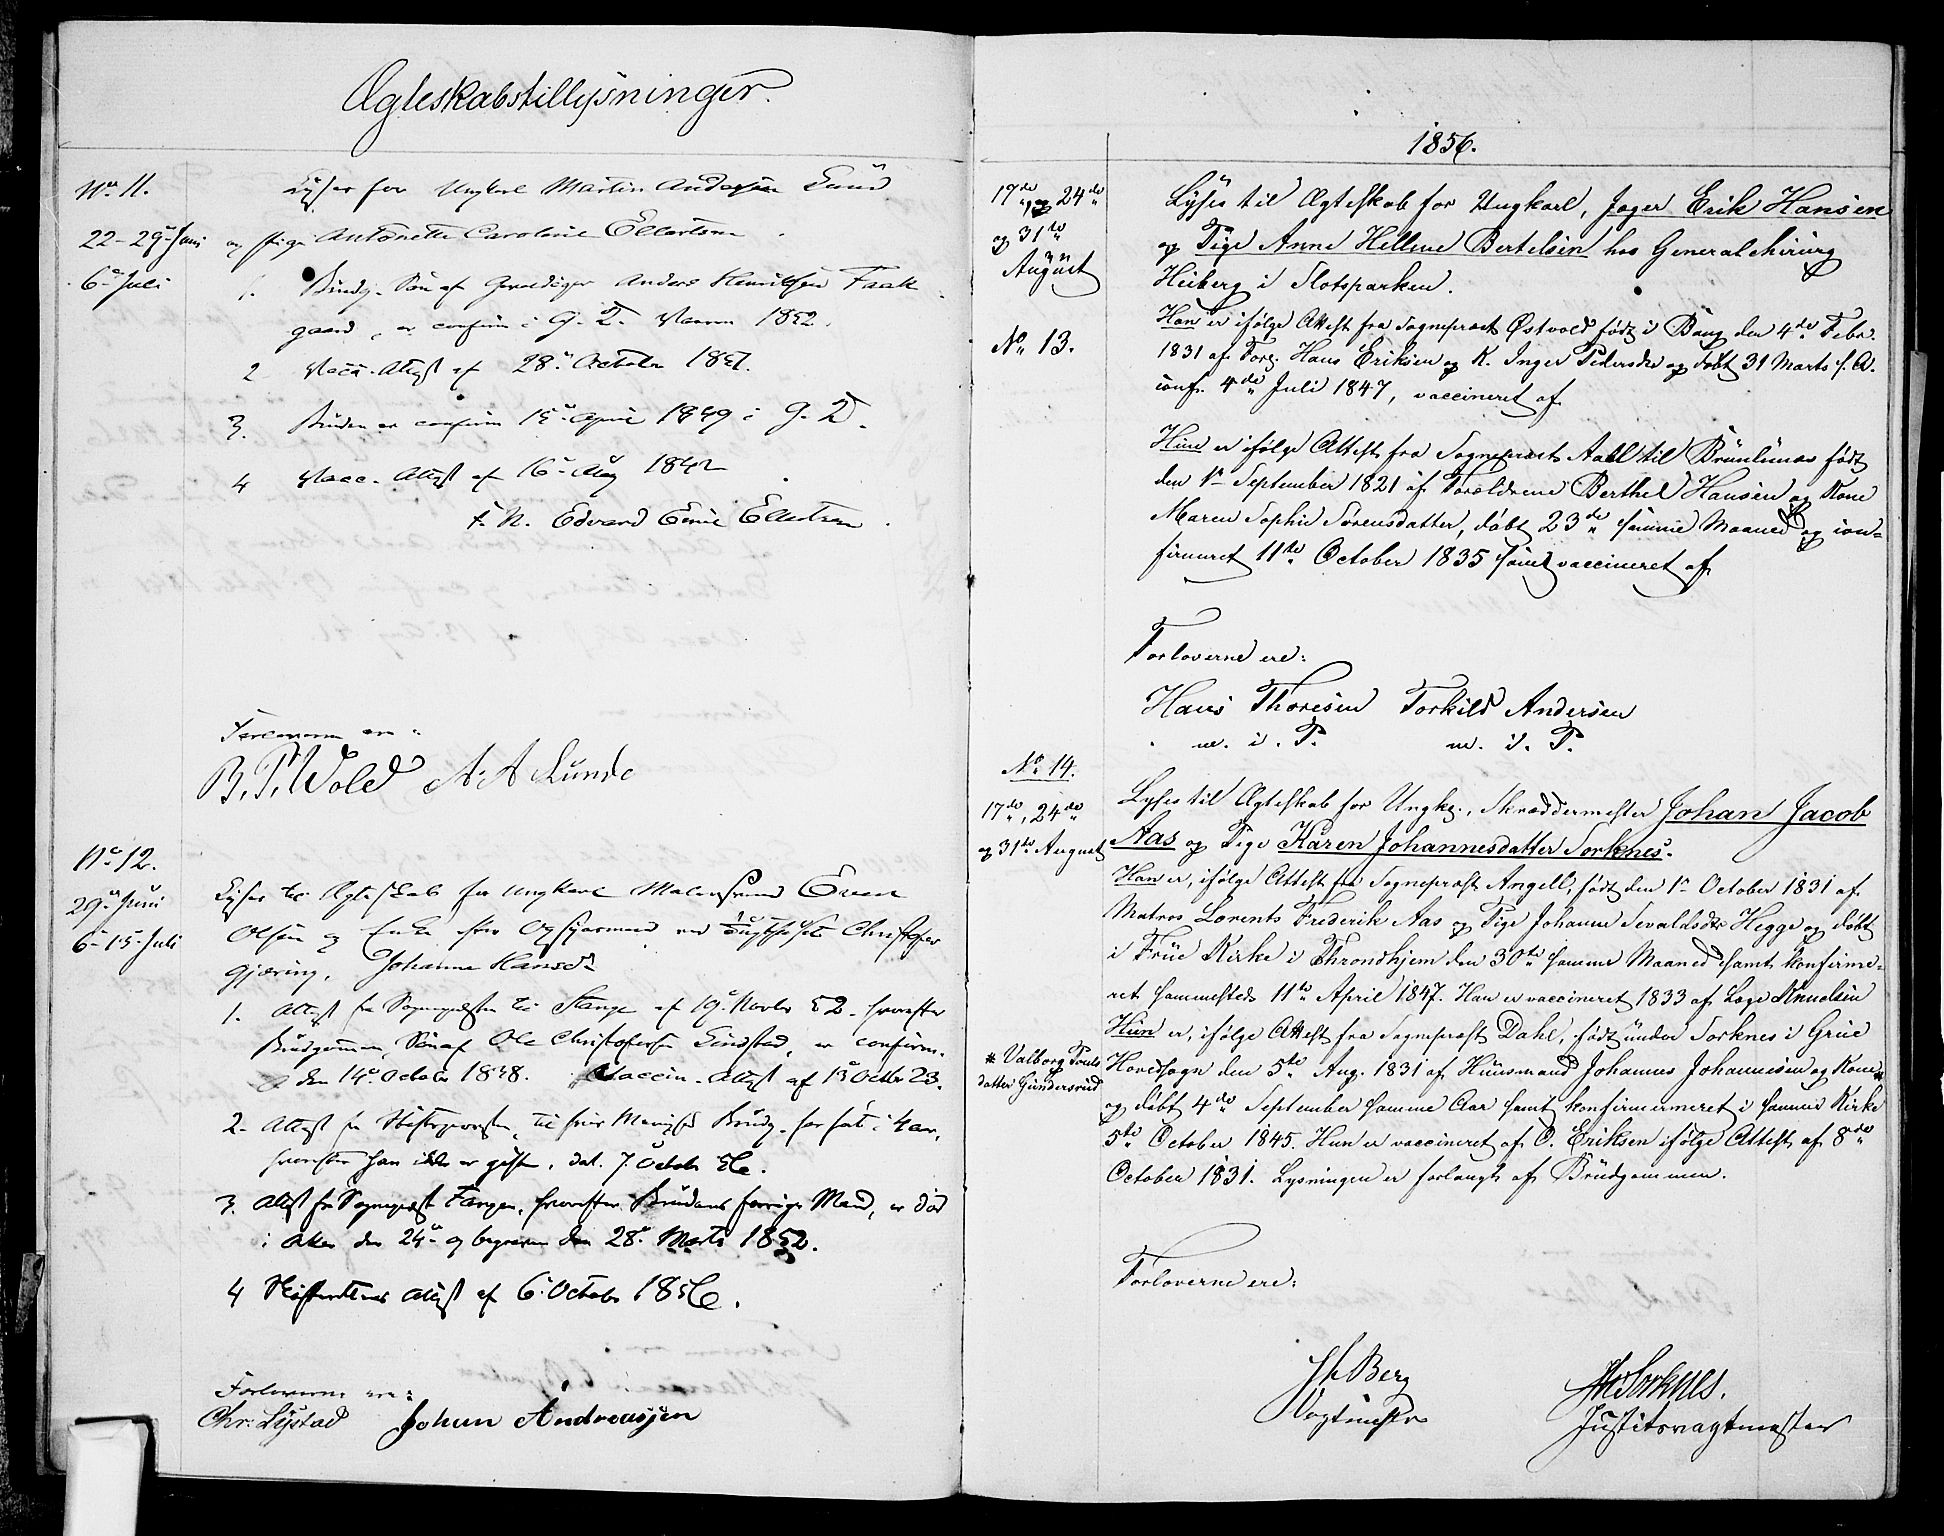 Ægteskabstillysninger.
No 11.
Lyses for Ungkarl Martin Andersen Lund
22 - 29 Juni
og Pige Antonette Caroline Ellertsen
6 Juli
1. Brudg. Søn af Anders Henriksen Faak
gaard, er confirm. i G. T. 1852.
2 Vacc. Attest af 28 October 1837.
3. Bruden er confirm 15 April 1849 i G. T.
4 Vacc. Attest af 16 Aug 1842
f. N. Edvard Emil Ellertsen
Forloverne ere:
B. P. Wold A. A. Lunde
No 12.
29 Juni
6 - 13 Juli
Lyses til Ægteskab for Ungkarl Even
Olsen og Enke efter Opsynsmand ved Christopher
Gjæring, Johanne Hansd.
1. Attest fra Sognepræsten til Stange af 19 Novbr 52 hvorefter
Brudgommen, Søn af Ole Christophersen Lindstad, er confirm.
den 14 Octobr 1838. Vaccin. Attest af 13 Octbr 23.
2. Attest fra Brudg. har
hvorefter han ikke er gift, dat. 7 Octobr 56.
3. Attest fra Sognepræst hvorefter Brudens forrige Mand, er død
i Aker den 24 og begraven den 28 Marts 1852.
4 Skifterettens Attest af 6 October 1856.
Forloverne ere:
Chr: Lystad Johan Andreassen
1856.
17de og 24de
og 31te
August
No 13.
Lyses til Ægteskab for Ungkarl, Jæger Erik Hansen
og Pige Anne Hellene Bertelsen hos Generalchirurg
Heiberg i Slotsparken.
Han er ifølge Attest fra Sognepræst Østvold født i Vang den 4de Febr.
1831 af Forg. Hans Eriksen og K. Inger Pedersdr og døbt 31 Marts s. A.
conf. 4de Juli 1847, vaccineret af
Hun er ifølge Attest fra Sognepræst Aall til Brunlanæs født
den 1te September 1821 af Forældrene Berthel Hansen og Kone
Maren Sophie Sørensdatter, døbt 23de samme Maaned og con-
firmeret 11te October 1835 samt vaccineret af
Forloverne ere:
Hans Thoresen Torkild Andersen
m. i. P. m. i. P.
No 14.
17de, 24de
og 31te August
Lyses til Ægteskab for Ungk., Skræddermester Johan Jacob
Aas og Pige Karen Johannesdatter Sorknes.
Han er, ifølge Attest fra Sognepræst Angell, født den 1te October 1831 af
Matros Lorents Frederik Aas og Pige Johanne Sevaldsdr Hegge og døbt
i Frue Kirke i Throndhjem den 30te samme Maaned samt konfirme-
ret sammesteds 11te April 1847. Han er vaccineret 1833 af Læge Knudsen
Hun er, ifølge Attest fra Sognepræst Dahl, født under Sorknes i Grue
* Valborg Pouls
datter Gundersrud
Hovedsogn den 5te Aug. 1831 af Huusmand Johannes Johannesen og Kone *
og døbt 4de September samme Aar samt konfirmermeret i samme Kirke
5te October 1845. Hun er vaccineret af O. Eriksen ifølge Attest af 8de
October 1831. Lysningen er forlangt af Brudgommen.
Forloverne ere:
Berg Sorknes.
Vogtmester Justitsvagtmester